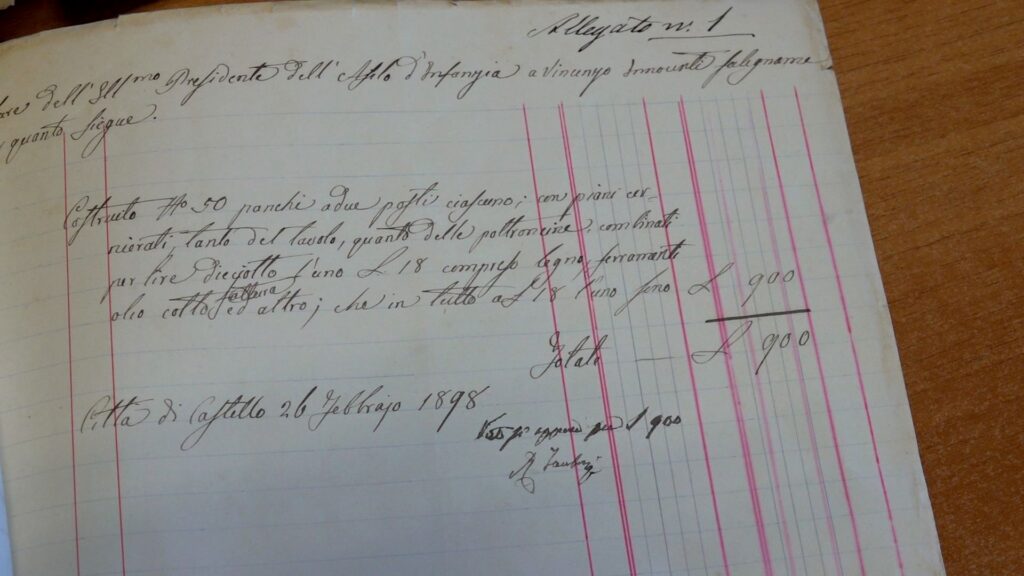 Allegato n. 1
dell'Ill.mo Presidente dell'Asilo d'Infanzia a Vincenzo Innocenti falegname
quanto siegue.
Costruito No 50 panchi a due posti ciascuno; con piani cer-
nierati, tanto del tavolo, quanto delle poltroncine, combinati
per lire dieciotto l'uno £ 18 compreso legno, ferramenti
fattura
olio cotto ed altro; che in tutto a £ 18 l'uno sono £ 900
Totali — £ 900
Citta di Castello 26 Febbrajo 1898
Visto si approva per £ 900